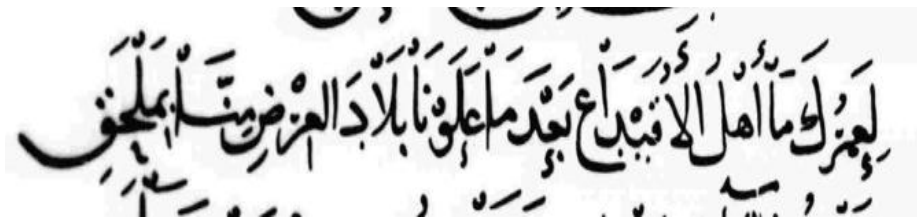 لَعَمْرُكَ مَا أَهْلُ الأُقَيْدَاعِ بَعْدَ مَا عَلَوْنَا بِلَادَ العِرْضِ مِنَّا بِمَلْحَقِ